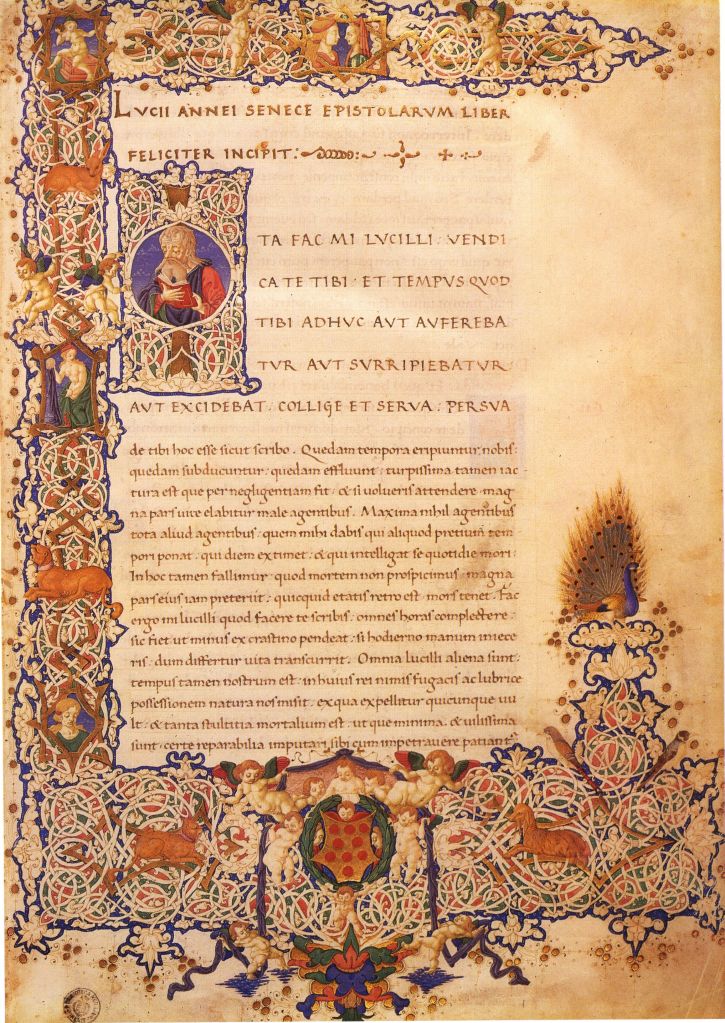 LVCII ANNEI SENECE EPISTOLARVM LIBER
FELICITER INCIPIT:
ITA FAC MI LVCILLI: VENDI
CA TE TIBI: ET TEMPUS QVOD
TIBI ADHVC AVT AVFEREBA
TVR AVT SVRRIPIEBATVR:
AVT EXCIDEBAT: COLLIGE ET SERVA: PERSVA
de tibi hoc esse sicut scribo. Quedam tempora eripiuntur nobis:
quedam subducuntur: quedam effluunt: turpissima tamen iac-
tura est que per negligentiam fit: & si volueris attendere: mag
na pars uite elabitur male agentibus. Maxima nihil agentibus
tota aliud agentibus: quem mihi dabis qui aliquod pretium tem
pori ponat: qui diem extimet: & qui intelligat se quotidie mori:
In hoc tamen fallimur: quod mortem non prospicimus: magna
pars eius iam preteriit: quicquid etatis retro est: mors tenet. Fac
ergo mi lucilli quod facere te scribis: omnes horas complectere:
sic fiet ut minus ex crastino pendeat: si hodierno manum iniece
ris: dum differtur vita transcurrit. Omnia lucilli aliena sunt:
tempus tamen nostrum est: in huius rei nimis fugacis ac lubrice
possessionem natura nos misit: ex qua expellitur quicunque uu
lt: & tanta stultitia mortalium est: ut que minima: & uilissima
sunt: certe reparabilia imputari sibi cum impetrauere patiant